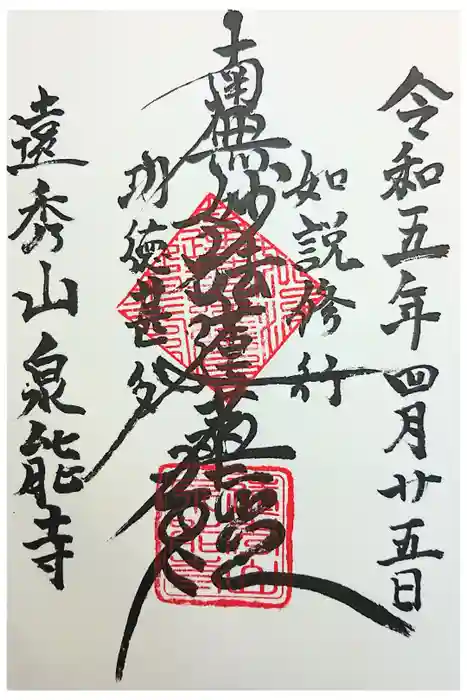 令和五年四月廿五日
如説修行
南無妙法蓮華経
功徳甚多
遠秀山泉能寺